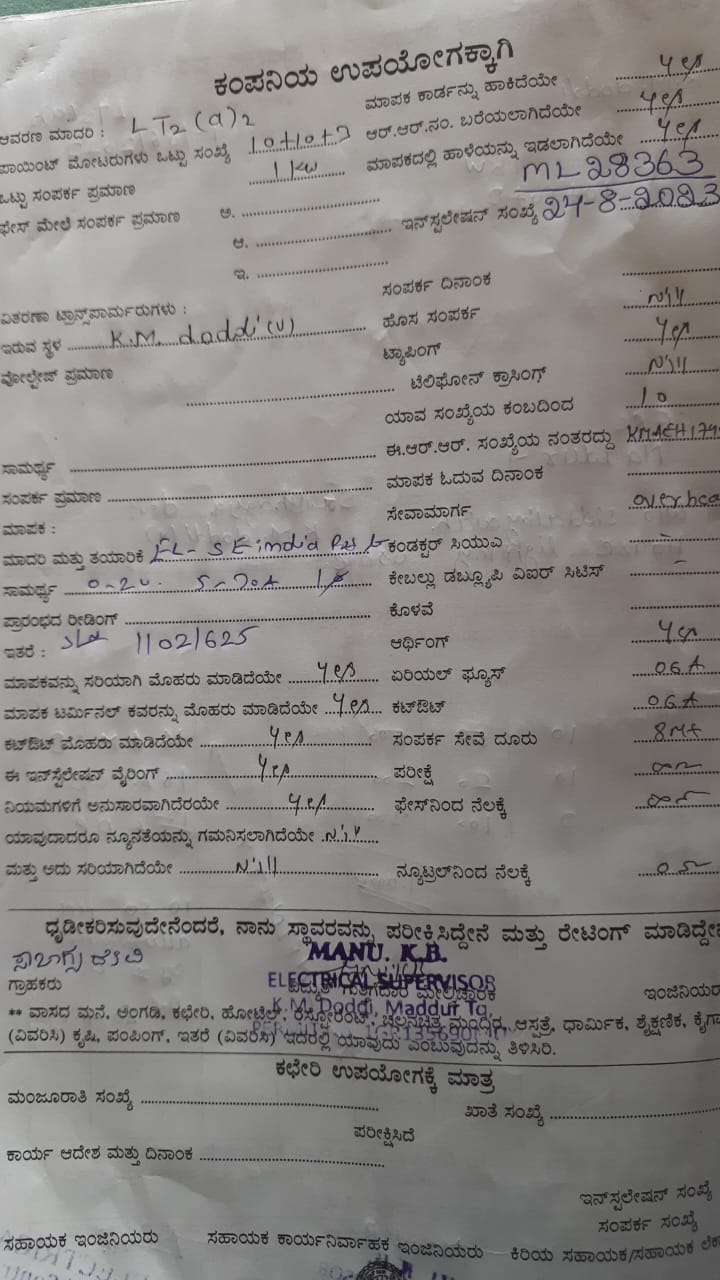 ಕಂಪನಿಯ ಉಪಯೋಗಕ್ಕಾಗಿ
ಮಾಪಕ ಕಾರ್ಡನ್ನು ಹಾಕಿದೆಯೇ yes
ಆವರಣ ಮಾದರಿ : LT2 (a) 2
ಆರ್.ಆರ್.ನಂ. ಬರೆಯಲಾಗಿದೆಯೇ yes
ಪಾಯಿಂಟ್ ಮೋಟರುಗಳು ಒಟ್ಟು ಸಂಖ್ಯೆ
ಮಾಪಕದಲ್ಲಿ ಹಾಳೆಯನ್ನು ಇಡಲಾಗಿದೆಯೇ yes
ಒಟ್ಟು ಸಂಪರ್ಕ ಪ್ರಮಾಣ 1 kw
ML 28363
ಫೇಸ್ ಮೇಲೆ ಸಂಪರ್ಕ ಪ್ರಮಾಣ ಅ.
ಇನ್‌ಸ್ಪಲೇಷನ್ ಸಂಖ್ಯೆ 24-8-2023
ಆ.
ಇ.
ಸಂಪರ್ಕ ದಿನಾಂಕ
ವಿತರಣಾ ಟ್ರಾನ್ಸ್‌ಪಾರ್ಮರುಗಳು :
ಹೊಸ ಸಂಪರ್ಕ Nill
ಇರುವ ಸ್ಥಳ K.M. doddi (V)
ಟ್ಯಾಪಿಂಗ್ yes
ವೋಲ್ಟೇಜ್ ಪ್ರಮಾಣ
ಟೆಲಿಫೋನ್ ಕ್ರಾಸಿಂಗ್ Nill
ಯಾವ ಸಂಖ್ಯೆಯ ಕಂಬದಿಂದ 10
ಸಾಮರ್ಥ್ಯ
ಈ.ಆರ್.ಆರ್. ಸಂಖ್ಯೆಯ ನಂತರದ್ದು
ಸಂಪರ್ಕ ಪ್ರಮಾಣ
ಮಾಪಕ ಓದುವ ದಿನಾಂಕ
ಮಾಪಕ :
ಸೇವಾಮಾರ್ಗ
ಮಾದರಿ ಮತ್ತು ತಯಾರಿಕೆ
ಕಂಡಕ್ಟರ್ ಸಿಯುವಿ
ಸಾಮರ್ಥ್ಯ
ಕೇಬಲ್ಲು ಡಬ್ಲ್ಯೂಪಿ ವಿಐರ್ ಸಿಟಿಸ್
ಪ್ರಾರಂಭದ ರೀಡಿಂಗ್
ಕೊಳವೆ
ಇತರೆ : 11021625
ಆರ್ಥಿಂಗ್ yes
ಮಾಪಕವನ್ನು ಸರಿಯಾಗಿ ಮೊಹರು ಮಾಡಿದೆಯೇ yes
ಏರಿಯಲ್ ಫ್ಯೂಸ್ 06 A
ಮಾಪಕ ಟರ್ಮಿನಲ್ ಕವರನ್ನು ಮೊಹರು ಮಾಡಿದೆಯೇ yes
ಕಟ್‌ಔಟ್ 06 A
ಕಟ್‌ಔಟ್ ಮೊಹರು ಮಾಡಿದೆಯೇ yes
ಸಂಪರ್ಕ ಸೇವೆ ದೂರು
ಈ ಇನ್‌ಸ್ಪೆಲೇಷನ್ ವೈರಿಂಗ್ yes
ಪರೀಕ್ಷೆ
ನಿಯಮಗಳಿಗೆ ಅನುಸಾರವಾಗಿದೆರಯೇ yes
ಫೇಸ್‌ನಿಂದ ನೆಲಕ್ಕೆ
ಯಾವುದಾದರೂ ನ್ಯೂನತೆಯನ್ನು ಗಮನಿಸಲಾಗಿದೆಯೇ Nil
ಮತ್ತು ಅದು ಸರಿಯಾಗಿದೆಯೇ Nill
ನ್ಯೂಟ್ರಲ್‌ನಿಂದ ನೆಲಕ್ಕೆ
ಧೃಡೀಕರಿಸುವುದೇನೆಂದರೆ, ನಾನು ಸ್ಥಾವರವನ್ನು ಪರೀಕಿಸಿದ್ದೇನೆ ಮತ್ತು ರೇಟಿಂಗ್ ಮಾಡಿದ್ದೇನೆ
MANU. K.B.
ELECTRICAL SUPERVISOR
ಗ್ರಾಹಕರು ವಿದ್ಯುತ್ ಗುತ್ತಿಗೆದಾರ ಮೇಲ್ವಿಚಾರಕ ಇಂಜಿನಿಯರ
K.M. Doddi, Maddur Tq.
** ವಾಸದ ಮನೆ, ಅಂಗಡಿ, ಕಛೇರಿ, ಹೋಟೆಲ್, ರೆಸ್ಟೋರೆಂಟ್, ಚಲನಚಿತ್ರ ಮಂದಿರ, ಆಸ್ಪತ್ರೆ, ಧಾರ್ಮಿಕ, ಶೈಕ್ಷಣಿಕ, ಕೈಗಾ
(ವಿವರಿಸಿ) ಕೃಷಿ, ಪಂಪಿಂಗ್, ಇತರೆ (ವಿವರಿಸಿ) ಇದರಲ್ಲಿ ಯಾವುದು ಎಂಬುವುದನ್ನು ತಿಳಿಸಿರಿ.
ಕಛೇರಿ ಉಪಯೋಗಕ್ಕೆ ಮಾತ್ರ
ಮಂಜೂರಾತಿ ಸಂಖ್ಯೆ
ಖಾತೆ ಸಂಖ್ಯೆ
ಪರೀಕ್ಷಿಸಿದೆ
ಕಾರ್ಯ ಆದೇಶ ಮತ್ತು ದಿನಾಂಕ
ಇನ್‌ಸ್ಪಲೇಷನ್ ಸಂಖ್ಯೆ
ಸಂಪರ್ಕ ಸಂಖ್ಯೆ
ಸಹಾಯಕ ಇಂಜಿನಿಯರು ಸಹಾಯಕ ಕಾರ್ಯನಿರ್ವಾಹಕ ಇಂಜಿನಿಯರು ಕಿರಿಯ ಸಹಾಯಕ/ಸಹಾಯಕ ಲೆಕ